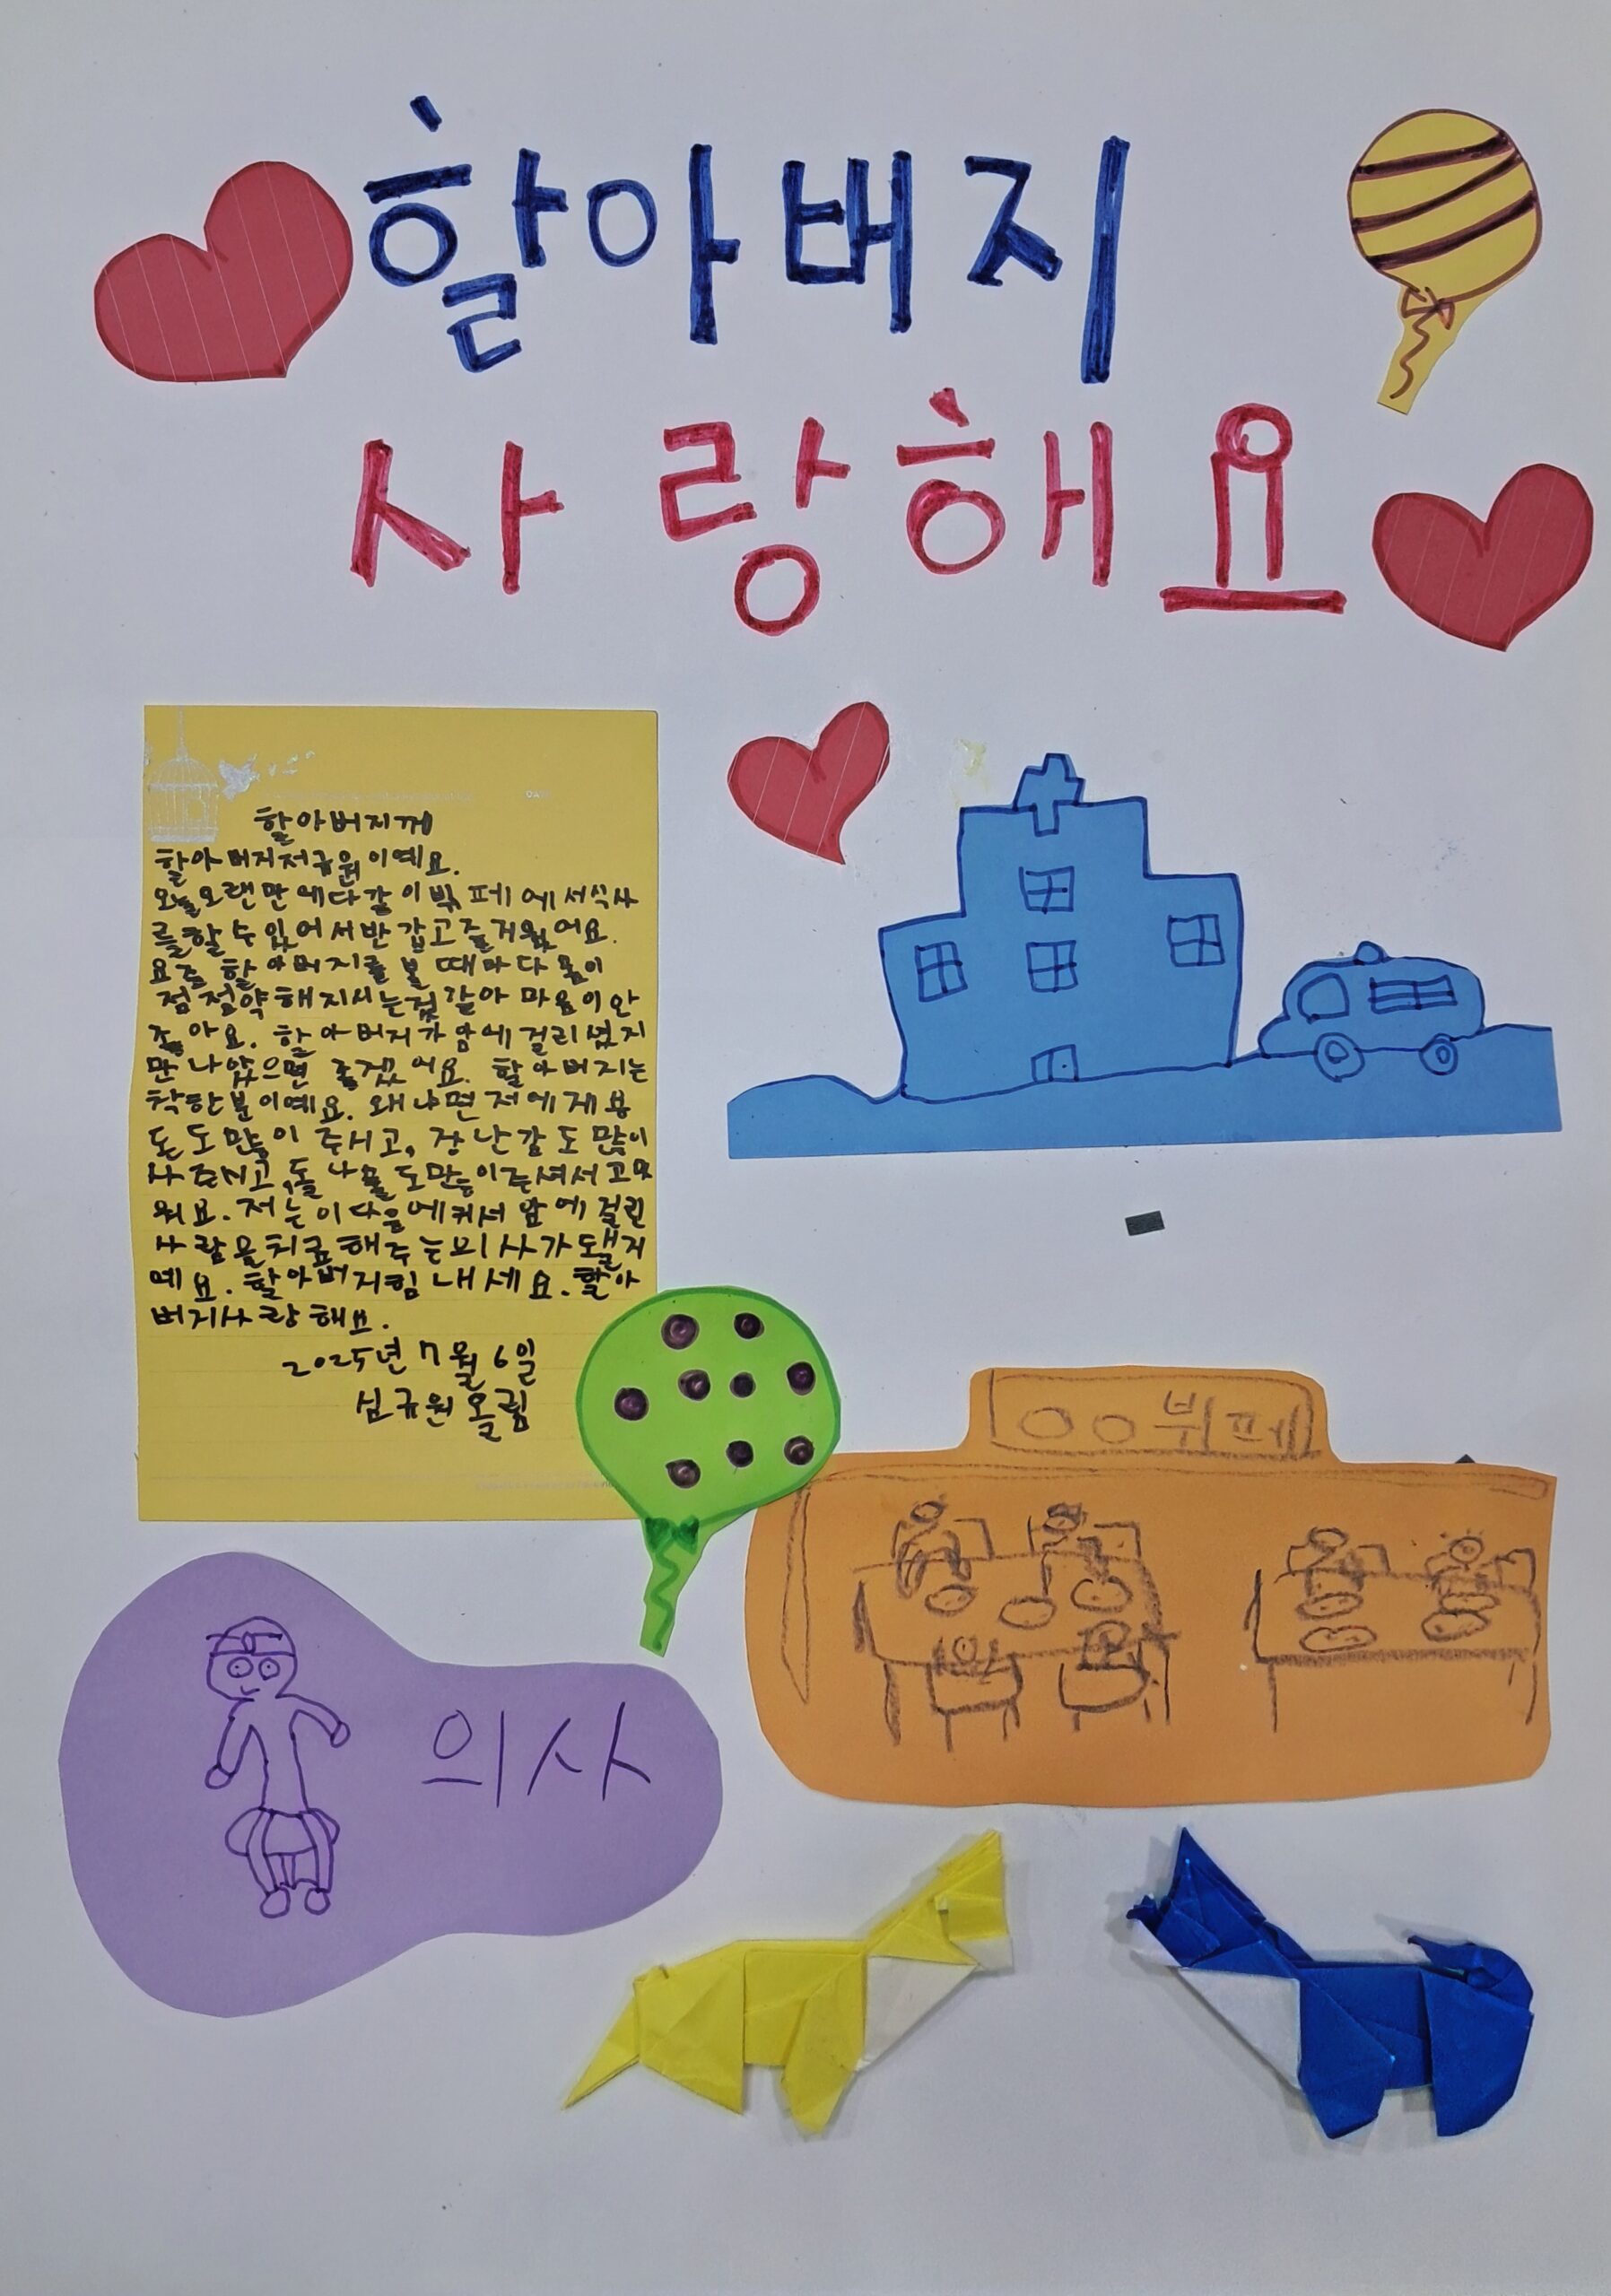 할아버지
사랑해요
할아버지께
할아버지저규원이예요.
오늘오랜만에다같이뷕페에서식사
를할수있어서반갑고즐거웠어요.
요즘할아버지를볼때마다몸이
점점약해지시는것같아마음이안
좋아요. 할아버지가암에걸리셨지
만나았으면 좋겠어요. 할아버지는
착한분이예요. 왜냐면저에게용
돈도많이 주시고, 장난감도많이
사주시고, 돌나물도많이주셔서고마
워요. 저는이다음에커서암에걸린
사람을치료해주는의사가됄거
예요. 할아버지힘내세요. 할아
버지사랑해요.
2025년 7월 6일
심규원올림
○○뷔페
의사